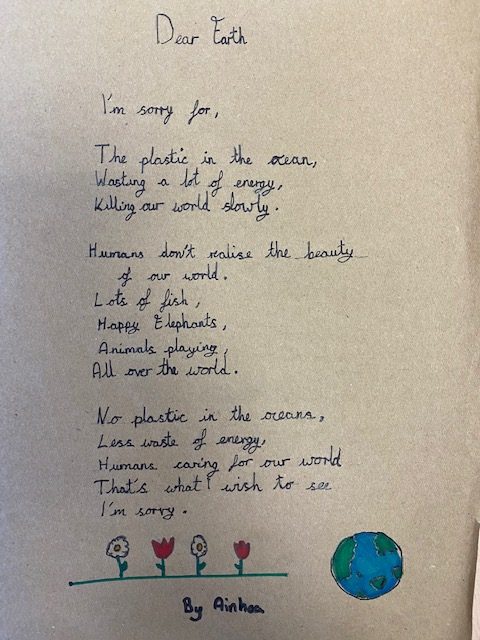 Dear Earth
I'm sorry for,
The plastic in the ocean,
Wasting a lot of energy,
Killing our world slowly.
Humans don't realise the beauty
of our world.
Lots of fish,
Happy Elephants,
Animals playing,
All over the world.
No plastic in the oceans,
Less waste of energy,
Humans caring for our world
That's what I wish to see
I'm sorry.
By Ainhoa